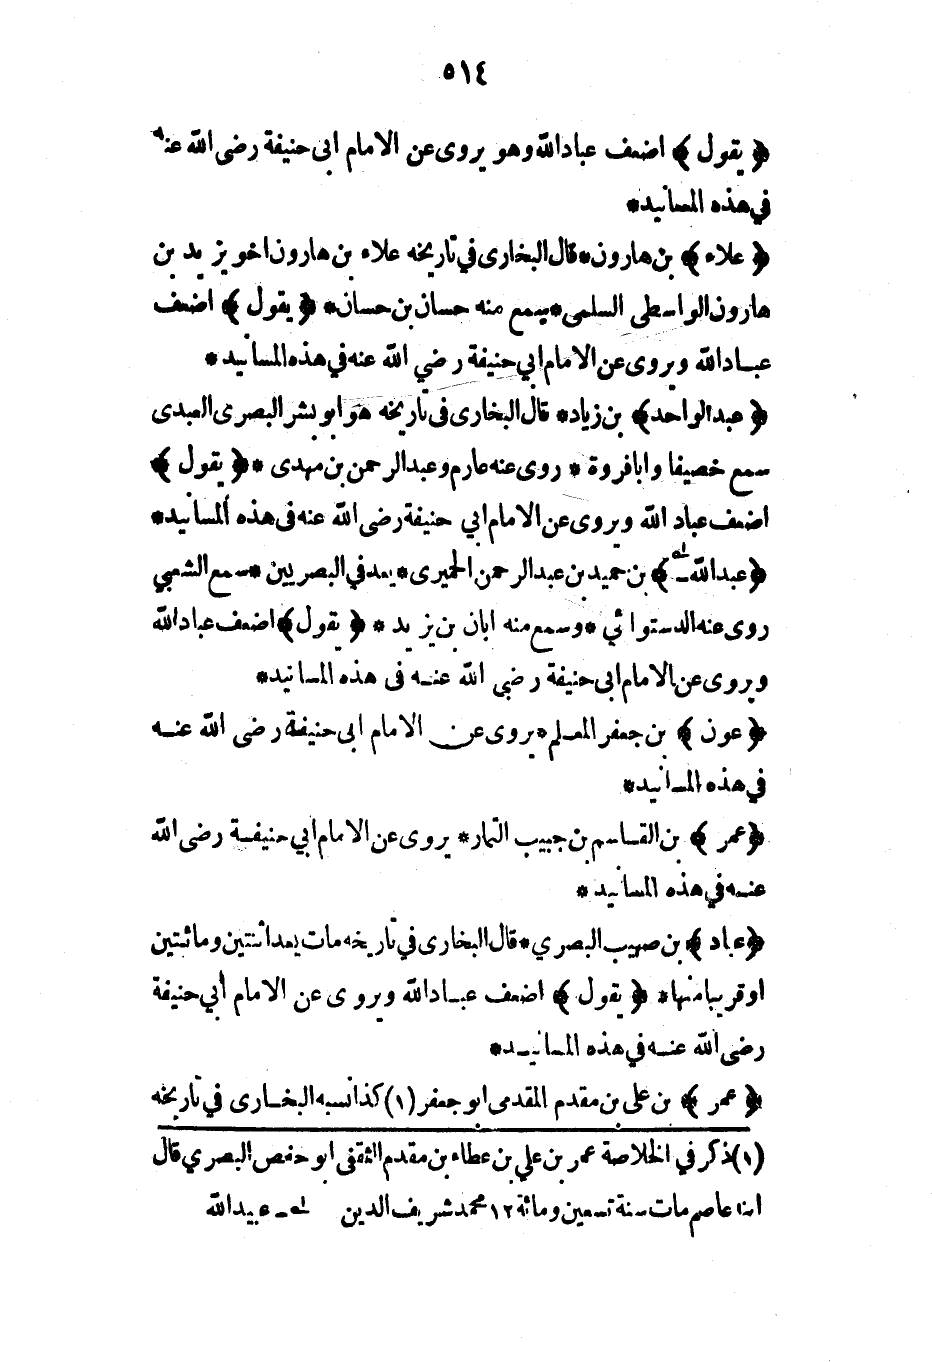 ٥١٤
﴿ يقول ﴾ اضعف عباد الله وهو يروى عن الامام ابى حنيفة رضى الله عنه
في هذه المسانيد*
﴿ علاء ﴾ بن هارون*قال البخارى في تاريخه علاء بن هارون اخو يزيد بن
هارون الواسطى السلمى*سمع منه حسان بن حسان* ﴿ يقول ﴾ اضعف
عباد الله ويروى عن الامام ابي حنيفة رضي الله عنه في هذه المسانيد *
﴿ عبد الواحد ﴾ بن زياد* قال البخارى فى تاريخه هو ابو بشر البصرى العبدى
سمع خصيفا وابا فروة * روى عنه عارم وعبد الرحمن بن مهدى *﴿ يقول ﴾
اضعف عباد الله ويروى عن الامام ابي حنيفة رضى الله عنه فى هذه المسانيد*
﴿ عبد الله ﴾ بن حميد بن عبد الرحمن الحميرى*يعد في البصريين*سمع الشعبي
روى عنه الدستوائي *وسمع منه ابان بن يزيد * ﴿ يقول ﴾ اضعف عباد الله
ويروى عن الامام ابى حنيفة رضي الله عنه فى هذه المسانيد*
﴿ عون ﴾ بن جعفر المعلم*يروى عن الامام ابى حنيفة رضى الله عنه
في هذه المسانيد*
﴿ عمر ﴾ بن القاسم بن حبيب التمار* يروى عن الامام ابي حنيفة رضى الله
عنه في هذه المسانيد *
﴿ عباد ﴾ بن صهيب البصري*قال البخارى في تاريخه مات بعد اثنتين ومائتين
او قريبا منها* ﴿ يقول ﴾ اضعف عباد الله ويروى عن الامام أبي حنيفة
رضى الله عنه في هذه المسانيد*
﴿ عمر ﴾ بن على بن مقدم المقدمى ابو جعفر (١) كذا نسبه البخارى في تاريخه
(١) ذكر في الخلاصة عمر بن علي بن عطاء بن مقدم الثقفى ابو حفص البصري قال
ابنه عاصم مات سنة تسعين ومائة ١٢ محمد شريف الدين له ـ عبيد الله